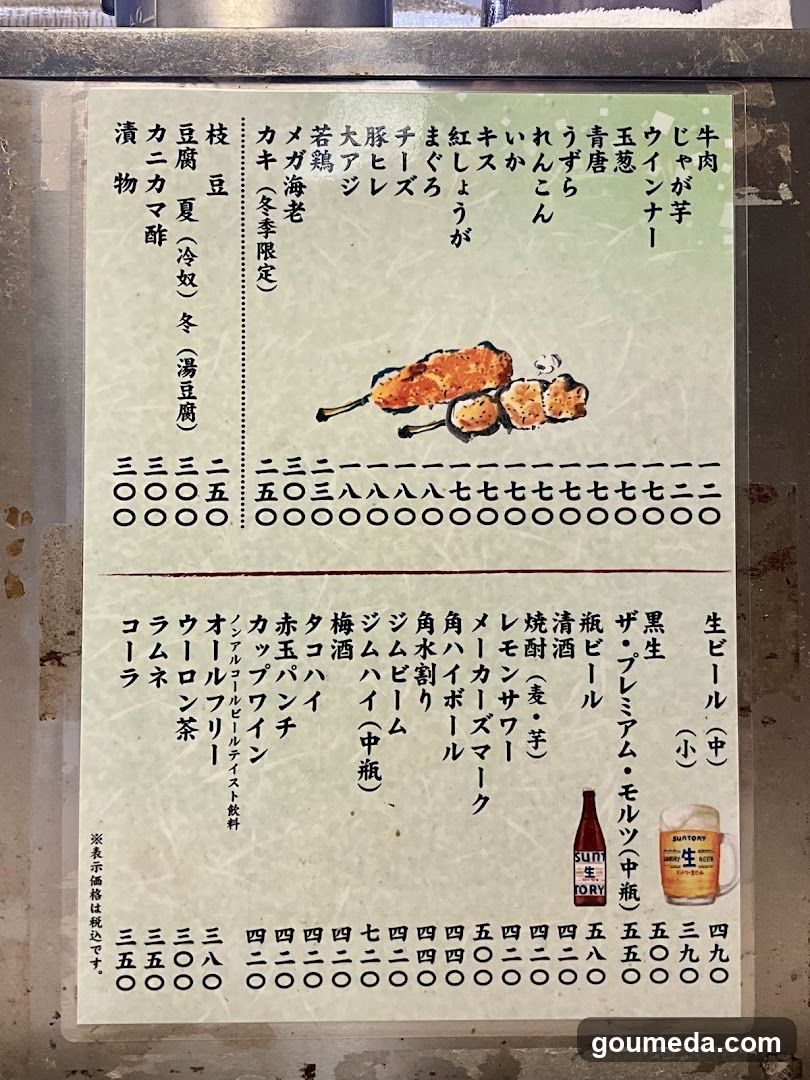 牛肉 一二〇
じゃが芋 一二〇
ウインナー 一七〇
玉葱 一七〇
青唐 一七〇
うずら 一七〇
れんこん 一七〇
いか 一七〇
キス 一七〇
紅しょうが 一七〇
まぐろ 一八〇
チーズ 一八〇
豚ヒレ 一八〇
大アジ 一八〇
若鶏 二三〇
メガ海老 三〇〇
カキ（冬季限定） 二五〇
枝豆 二五〇
豆腐 夏（冷奴）冬（湯豆腐） 三〇〇
カニカマ酢 三〇〇
漬物 三〇〇
生ビール（中） 四九〇
（小） 三九〇
黒生 五〇〇
ザ・プレミアム・モルツ（中瓶） 五五〇
瓶ビール 五八〇
清酒 四二〇
焼酎（麦・芋） 四二〇
レモンサワー 四二〇
メーカーズマーク 五〇〇
角ハイボール 四四〇
角水割り 四四〇
ジムビーム 四二〇
ジムハイ（中瓶） 七二〇
梅酒 四二〇
タコハイ 四二〇
赤玉パンチ 四二〇
カップワイン 四二〇
ノンアルコールビールテイスト飲料
オールフリー 三八〇
ウーロン茶 三〇〇
ラムネ 三五〇
コーラ 三五〇
※表示価格は税込です。
SUNTORY
生
BEER
SUNTORY
生
goumeda.com